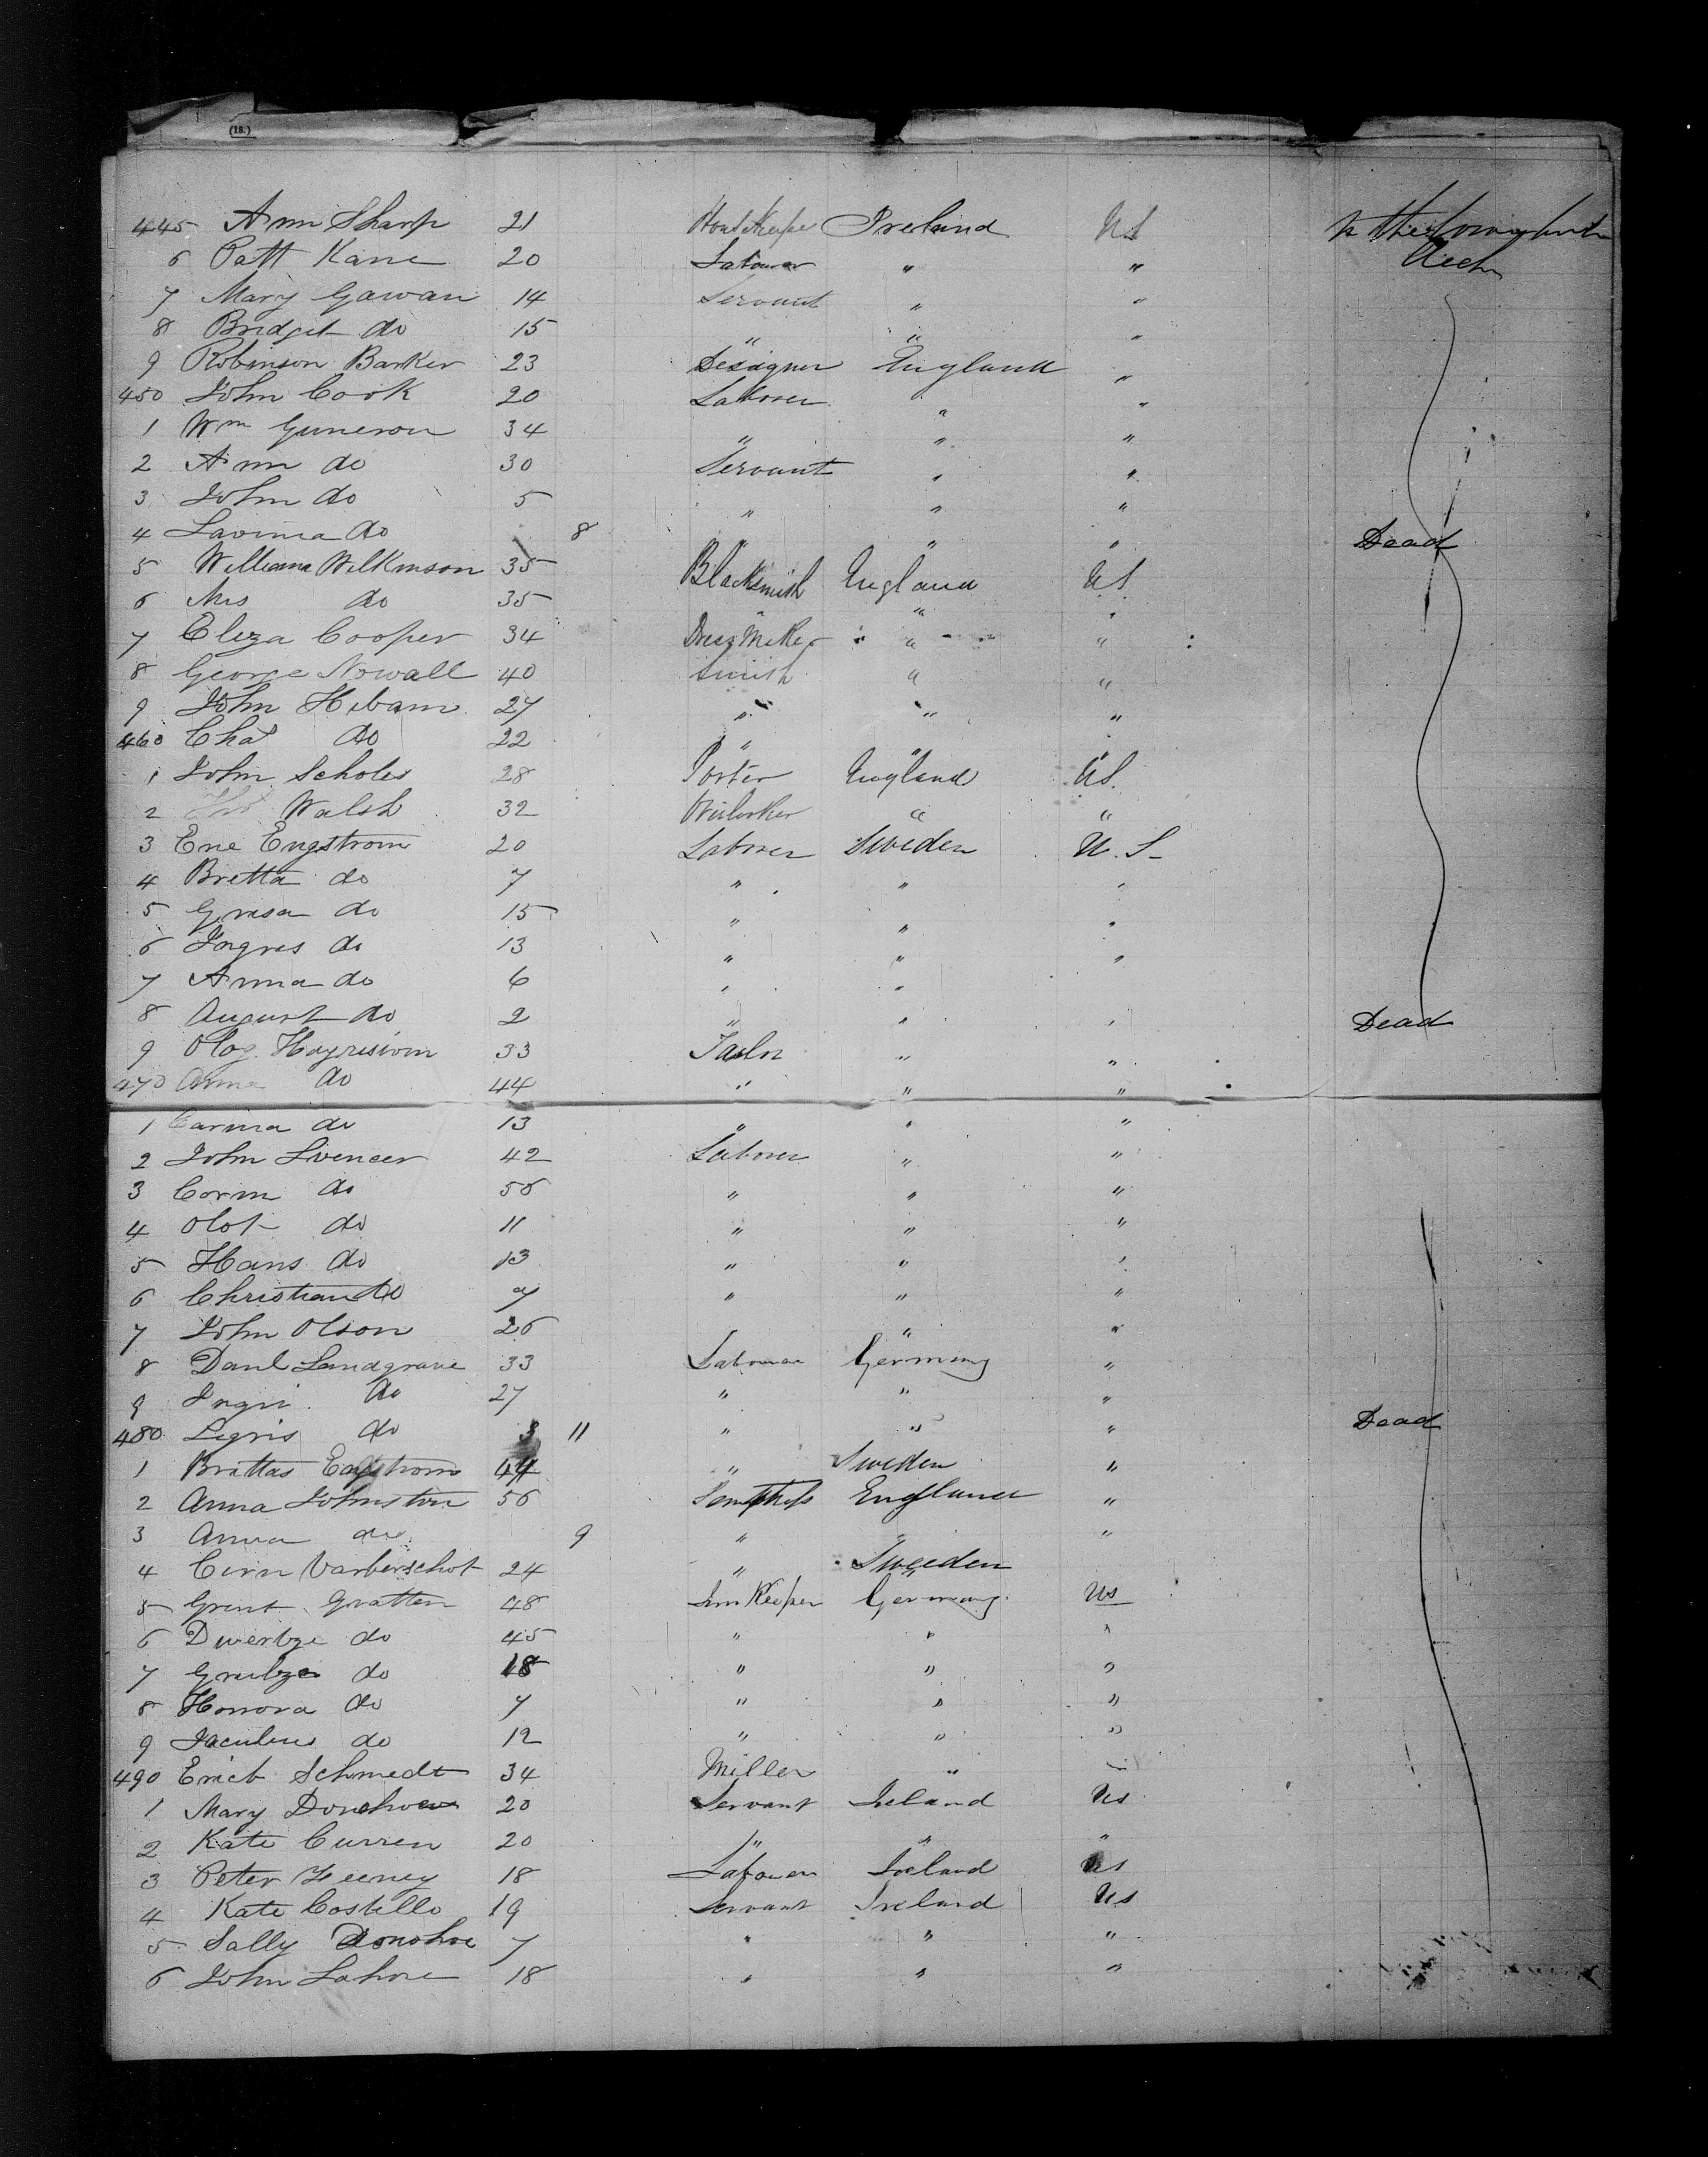 (18.)
445 Ann Sharp 21 Ireland US
6 Patt Kane 20 Labourer " "
7 Mary Gawan 14 Servant " "
8 Bridget do 15 " " "
9 Robinson Barker 23 Designer England "
450 John Cook 20 Laborer " "
1 Wm Guneson 34 " " "
2 Ann do 30 Servant " "
3 John do 5 " " "
4 Lavinia do 8 " " " Dead
5 William Wilkinson 35 Blacksmith England US
6 Mrs do 35 " "
7 Eliza Cooper 34 Dress Maker " "
8 George Nowall 40 Smith " "
9 John Hebam 27 " " "
460 Chas do 22 " " "
1 John Scholes 28 Porter England US.
2 Walsh 32 " "
3 Ene Engstrom 20 Laborer Sweden U.S-
4 Bretta do 7 " " "
5 do 15 " " "
6 Ingres do 13 " " "
7 Anna do 6 " "
8 August do 2 " " " Dead
9 Olog 33 Tailor " "
470 Anna do 44 " " "
1 Carina do 13 " " "
2 John 42 Laborer " "
3 Corin do 56 " " "
4 Olof do 11 " " "
5 Hans do 13 " " "
6 Christian do 7 " " "
7 John Olson 26 " "
8 Danl Landgrave 33 Labourer Germany "
9 Ingri do 27 " " "
480 Ligris do 3 11 " " " Dead
1 Brittas Engstrom 44 " Sweden "
2 Anna Johnston 56 England "
3 Anna do 9 " "
4 Cirn Varberschot 24 " Sweeden
5 Grint Gratten 48 Inn Keeper Germany US
6 do 45 " " "
7 do 18 " " "
8 Honora do 7 " " "
9 Jacubus do 12 " " "
490 Erich Schmedt 34 Miller " "
1 Mary Donohoe 20 Servant Ireland US
2 Kate Curren 20 " " "
3 Peter Feeney 18 Labourer Ireland US
4 Kate Costello 19 Servant Ireland US
5 Sally Donohoe 7 " " "
6 John Lahore 18 " " "